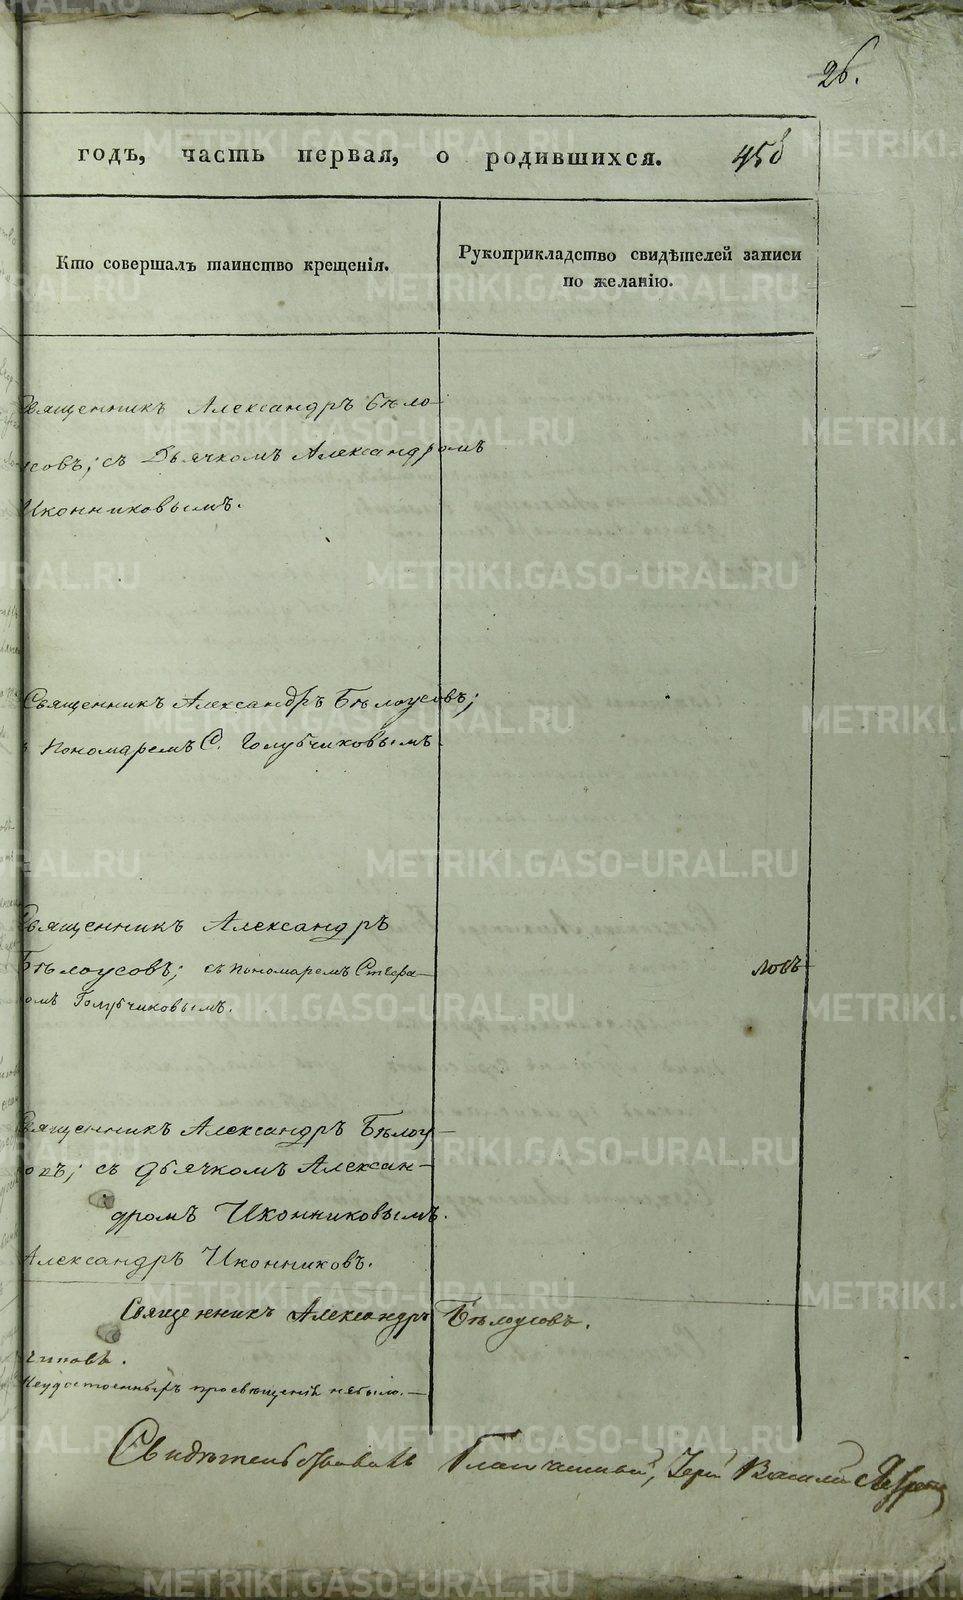 26.
годъ, часть первая, о родившихся. 458
Кто совершалъ таинство крещенія.
Рукоприкладство свидѣтелей записи
по желанію.
Священникъ Александръ Бѣло-
усовъ; съ Дьячкомъ Александромъ
Иконниковымъ.
Священникъ Александръ Бѣлоусовъ;
Пономаремъ С. Голубчиковымъ.
Священникъ Александръ
Бѣлоусовъ; съ пономаремъ Стефа-
номъ Голубчиковымъ.
ловъ
Священникъ Александръ Бѣлоу-
совъ; съ дьячкомъ Алексан-
дромъ Иконниковымъ.
Александръ Иконниковъ.
Священникъ Александръ Бѣлоусовъ.
чиковъ.
Неудостоенныхъ просвещенія небыло.—
Свидѣтельствовалъ Благочинный, Іерей Василій
METRIKI.GASO-URAL.RU